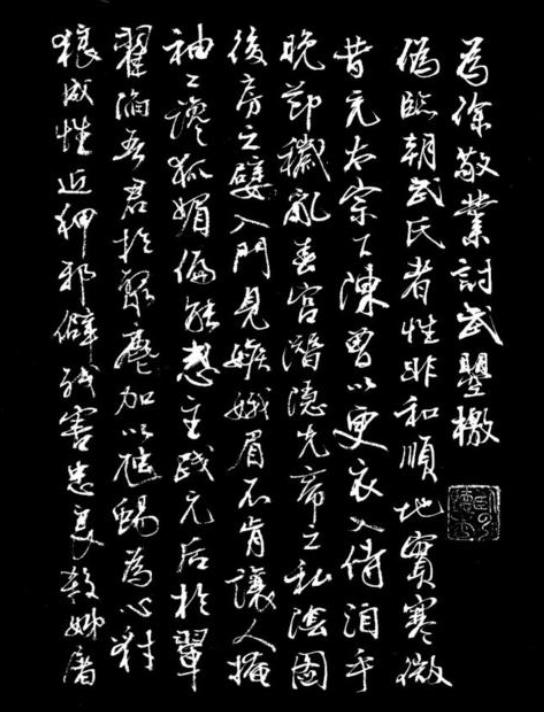 為徐敬業討武曌檄
偽臨朝武氏者性非和順地實寒微
昔充太宗下陳曾以更衣入侍洎乎
晚節穢亂春宮潛隱先帝之私陰圖
後房之嬖入門見嫉娥眉不肯讓人掩
袖工讒狐媚偏能惑主踐元后於翬
翟陷吾君於聚麀加以虺蜴為心豺
狼成性近狎邪僻殘害忠良殺姊屠